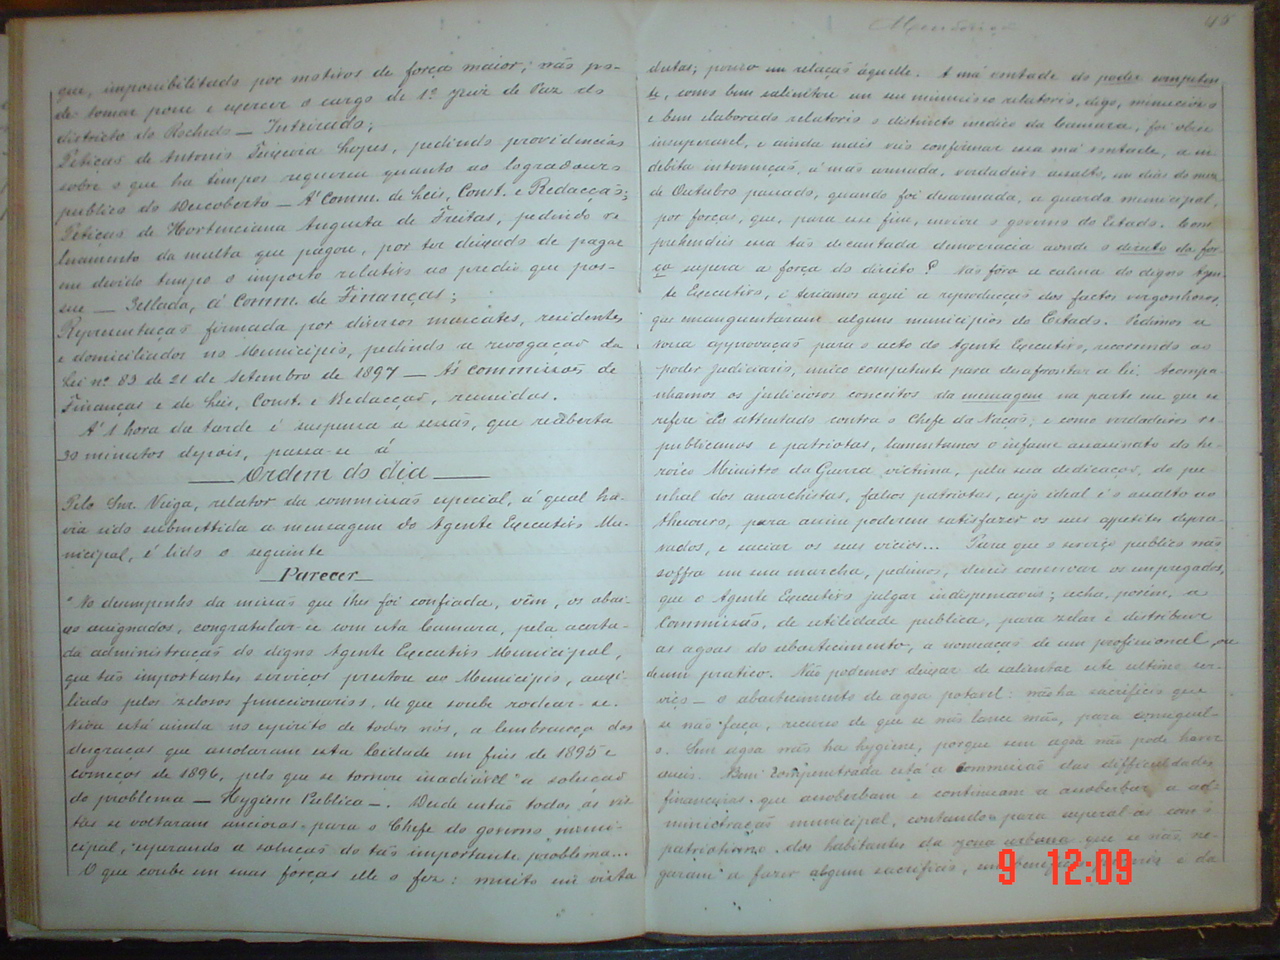 que, impossibilitado por motivos de força maior; não po-
de tomar posse e exercer o cargo de 1º Juiz de Paz do
districto do Rochedo — Inteirado;
Petição de Antonio Teixeira Lopes, pedindo providencias
sobre o que ha tempos requereu quanto ao logradouro
publico do Descoberto — Á Comm. de Leis, Const. e Redacção;
Petição de Hortenciana Augusta de Freitas, pedindo re-
levamento da multa que pagou, por ter deixado de pagar
em devido tempo o imposto relativo ao predio que pos-
sue — Sellada, á Comm. de Finanças;
Representação firmada por diversos mascates, residentes
e domiciliados no Municipio, pedindo a revogação da
Lei nº 83 de 21 de Setembro de 1897 — Ás commissões de
Finanças e de Leis, Const. e Redacção, reunidas.
Á 1 hora da tarde é suspensa a sessão, que reaberta
30 minutos depois, passa-se á
— Ordem do dia —
Pelo Snr. Veiga, relator da commissão especial, á qual ha-
via sido submettida a mensagem do Agente Executivo Mu-
nicipal, é lido o seguinte
— Parecer —
"No desempenho da missão que lhes foi confiada, vêm, os abai-
xo assignados, congratular-se com esta Camara, pela acerta-
da administração do digno Agente Executivo Municipal,
que tão importantes serviços prestou ao Municipio, auxi-
liado pelos zelosos funccionarios, de que soube rodear-se.
Viva está ainda no espirito de todos nós, a lembrança das
desgraças que assolaram esta Cidade em fins de 1895 e
começos de 1896, pelo que se tornou inadiavel a solução
do problema — Hygiene Publica —. Desde então todas as vis-
tas se voltaram anciosas para o Chefe do governo muni-
cipal, esperando a solução de tão importante problema...
O que coube em suas forças elle o fez: muito em vista
45
dutas; pouco em relação áquelle. A má vontade do poder competen-
te, como bem salientou em seu minucioso relatorio, digo, minucioso
e bem elaborado relatorio o distincto medico da Camara, foi obice
insuperavel, e ainda mais veio confirmar essa má vontade, a in-
debita intervenção, á mão armada, verdadeiro assalto, em dias do mez
de Outubro passado, quando foi desarmada, a guarda municipal,
por forças, que, para esse fim, enviou o governo do Estado. Com
prehendeis essa tão decantada democracia aonde o direito da for-
ça supera a força do direito? Não fôra a calma do digno Agen-
te Executivo, e teriamos aqui a reproducção dos factos vergonhosos,
que ensanguentaram alguns municipios do Estado. Pedimos a
vossa approvação para o acto do Agente Executivo, recorrendo ao
poder judiciario, unico competente para desafrontar a lei. Acompa-
nhamos os judiciosos conceitos da mensagem na parte em que se
refere ao attentado contra o Chefe da Nação; e como verdadeiros re-
publicanos e patriotas, lamentamos o infame assassinato do he-
roico Ministro da Guerra victima, pela sua dedicação, do pu-
nhal dos anarchistas, falsos patriotas, cujo ideal é o assalto ao
thesouro, para assim poderem satisfazer os seus appetites depra-
vados, e saciar os seus vicios... Para que o serviço publico não
soffra em sua marcha, pedimos, deveis conservar os empregados,
que o Agente Executivo julgar indispensaveis; acha, porem, a
Commissão, de utilidade publica, para zelar e distribuir
as agoas do abastecimento, a nomeação de um profissional, ou
de um pratico. Não podemos deixar de salientar este ultimo ser-
viço — o abastecimento de agoa potavel: não ha sacrificio que
se não faça, recurso de que se não lance mão, para consegui-l-
o. Sem agoa não ha hygiene, porque sem agoa não pode haver
aceio. Bem compenetrada está a Commissão das difficuldades
financeiras que assoberbam e continuam a assoberbar a ad-
ministração municipal, contando para superal-as com o
patriotismo dos habitantes da zona urbana que se não ne-
garam a fazer algum sacrificio, em e da
9 12:09